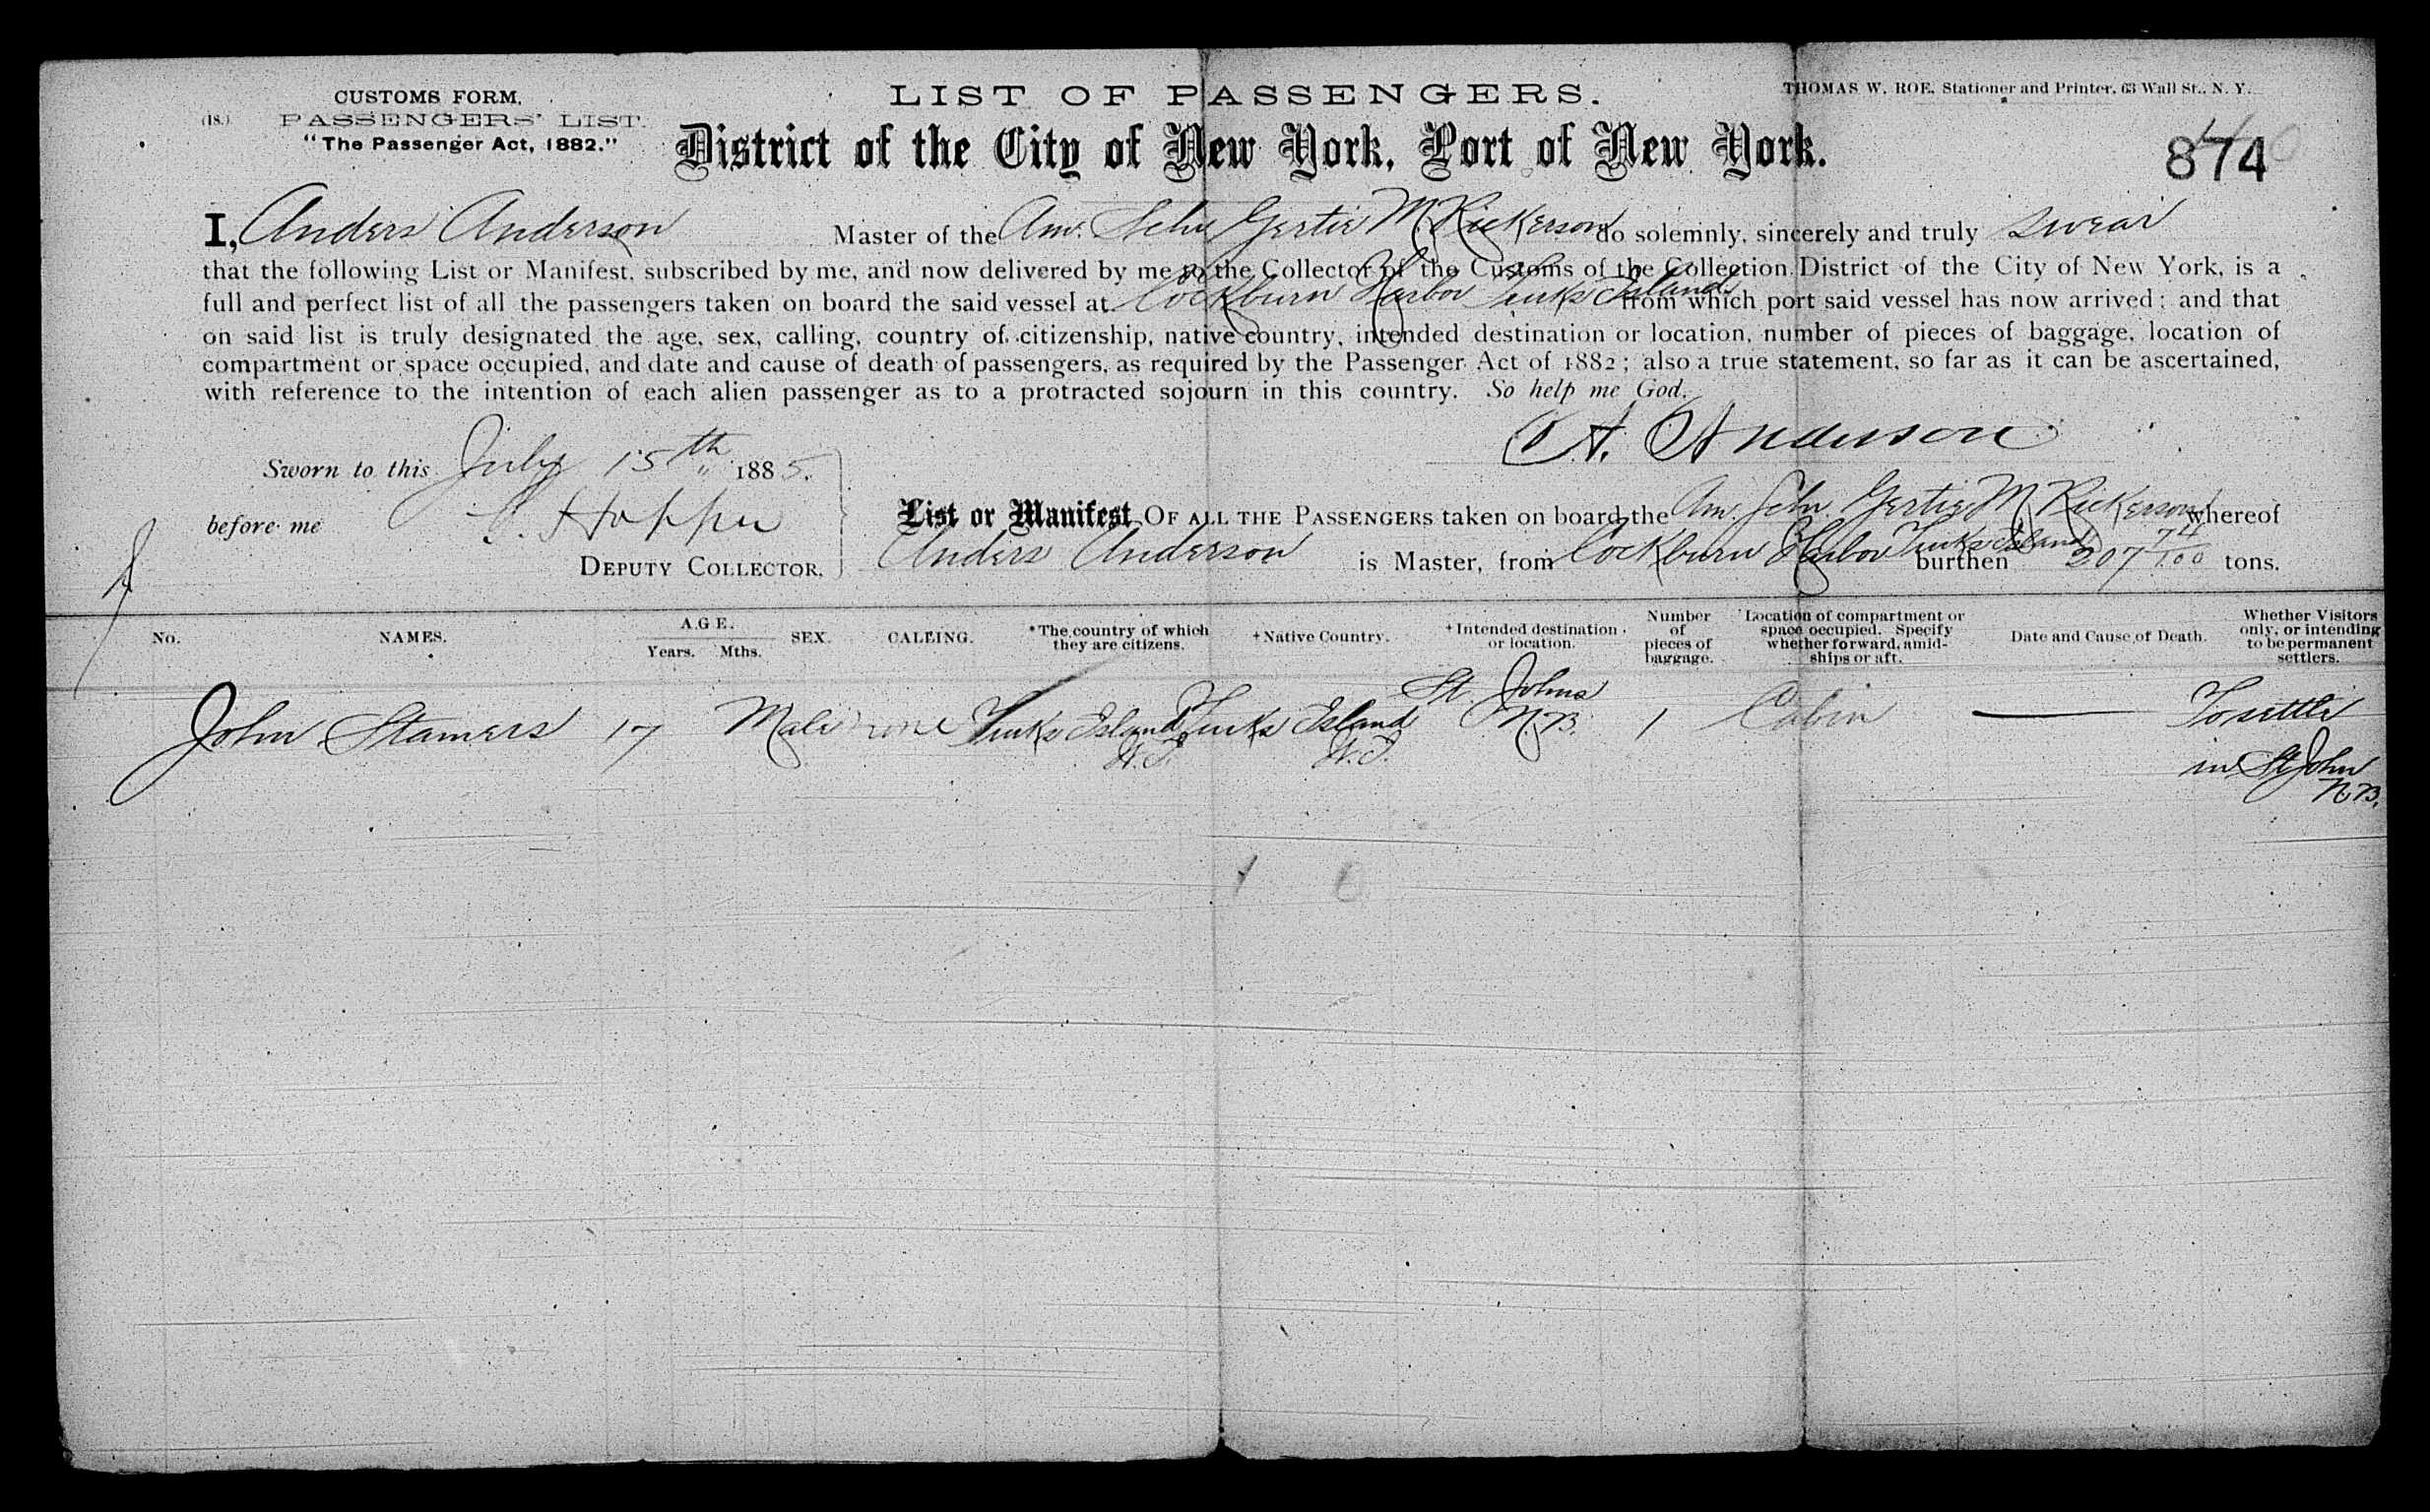 CUSTOMS FORM.
(18.) PASSENGERS' LIST.
"The Passenger Act, 1882."
LIST OF PASSENGERS.
THOMAS W. ROE, Stationer and Printer, 63 Wall St., N. Y.
District of the City of New York, Port of New York.
874
I, Anders Anderson Master of the Am. Schr Gertie M. Rickerson do solemnly, sincerely and truly swear
that the following List or Manifest, subscribed by me, and now delivered by me to the Collector of the Customs of the Collection District of the City of New York, is a
full and perfect list of all the passengers taken on board the said vessel at Cockburn Harbor Turks Island from which port said vessel has now arrived; and that
on said list is truly designated the age, sex, calling, country of citizenship, native country, intended destination or location, number of pieces of baggage, location of
compartment or space occupied, and date and cause of death of passengers, as required by the Passenger Act of 1882; also a true statement, so far as it can be ascertained,
with reference to the intention of each alien passenger as to a protracted sojourn in this country. So help me God.
A. Anderson
Sworn to this July 15th 1885.
before me Hopper
DEPUTY COLLECTOR.
List or Manifest OF ALL THE PASSENGERS taken on board the Am. Schr Gertie M Rickerson whereof
Anders Anderson is Master, from Cockburn Harbor Turks Island burthen 207 74/100 tons.
No. NAMES. AGE. Years. Mths. SEX. CALLING. *The country of which they are citizens. +Native Country. +Intended destination or location. Number of pieces of baggage. Location of compartment or space occupied. Specify whether forward, amidships or aft. Date and Cause of Death. Whether Visitors only, or intending to be permanent settlers.
John Stamers 17 Male none Turks Island W.I. Turks Island W.I. St Johns N.B. 1 Cabin — To settle
in St John
N.B.
1 0